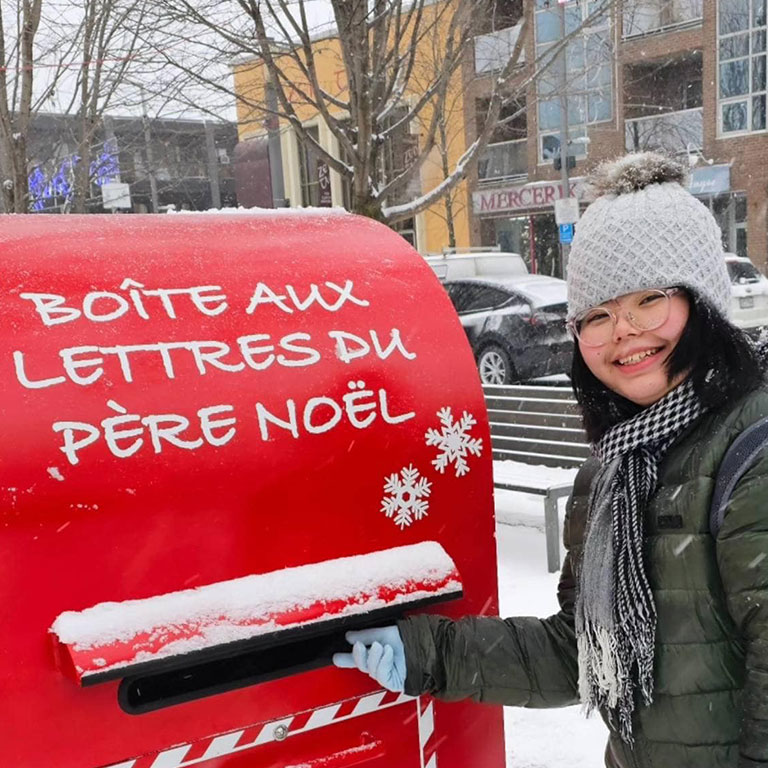 BOÎTE AUX
LETTRES DU
PÈRE NOËL
MERCERIE